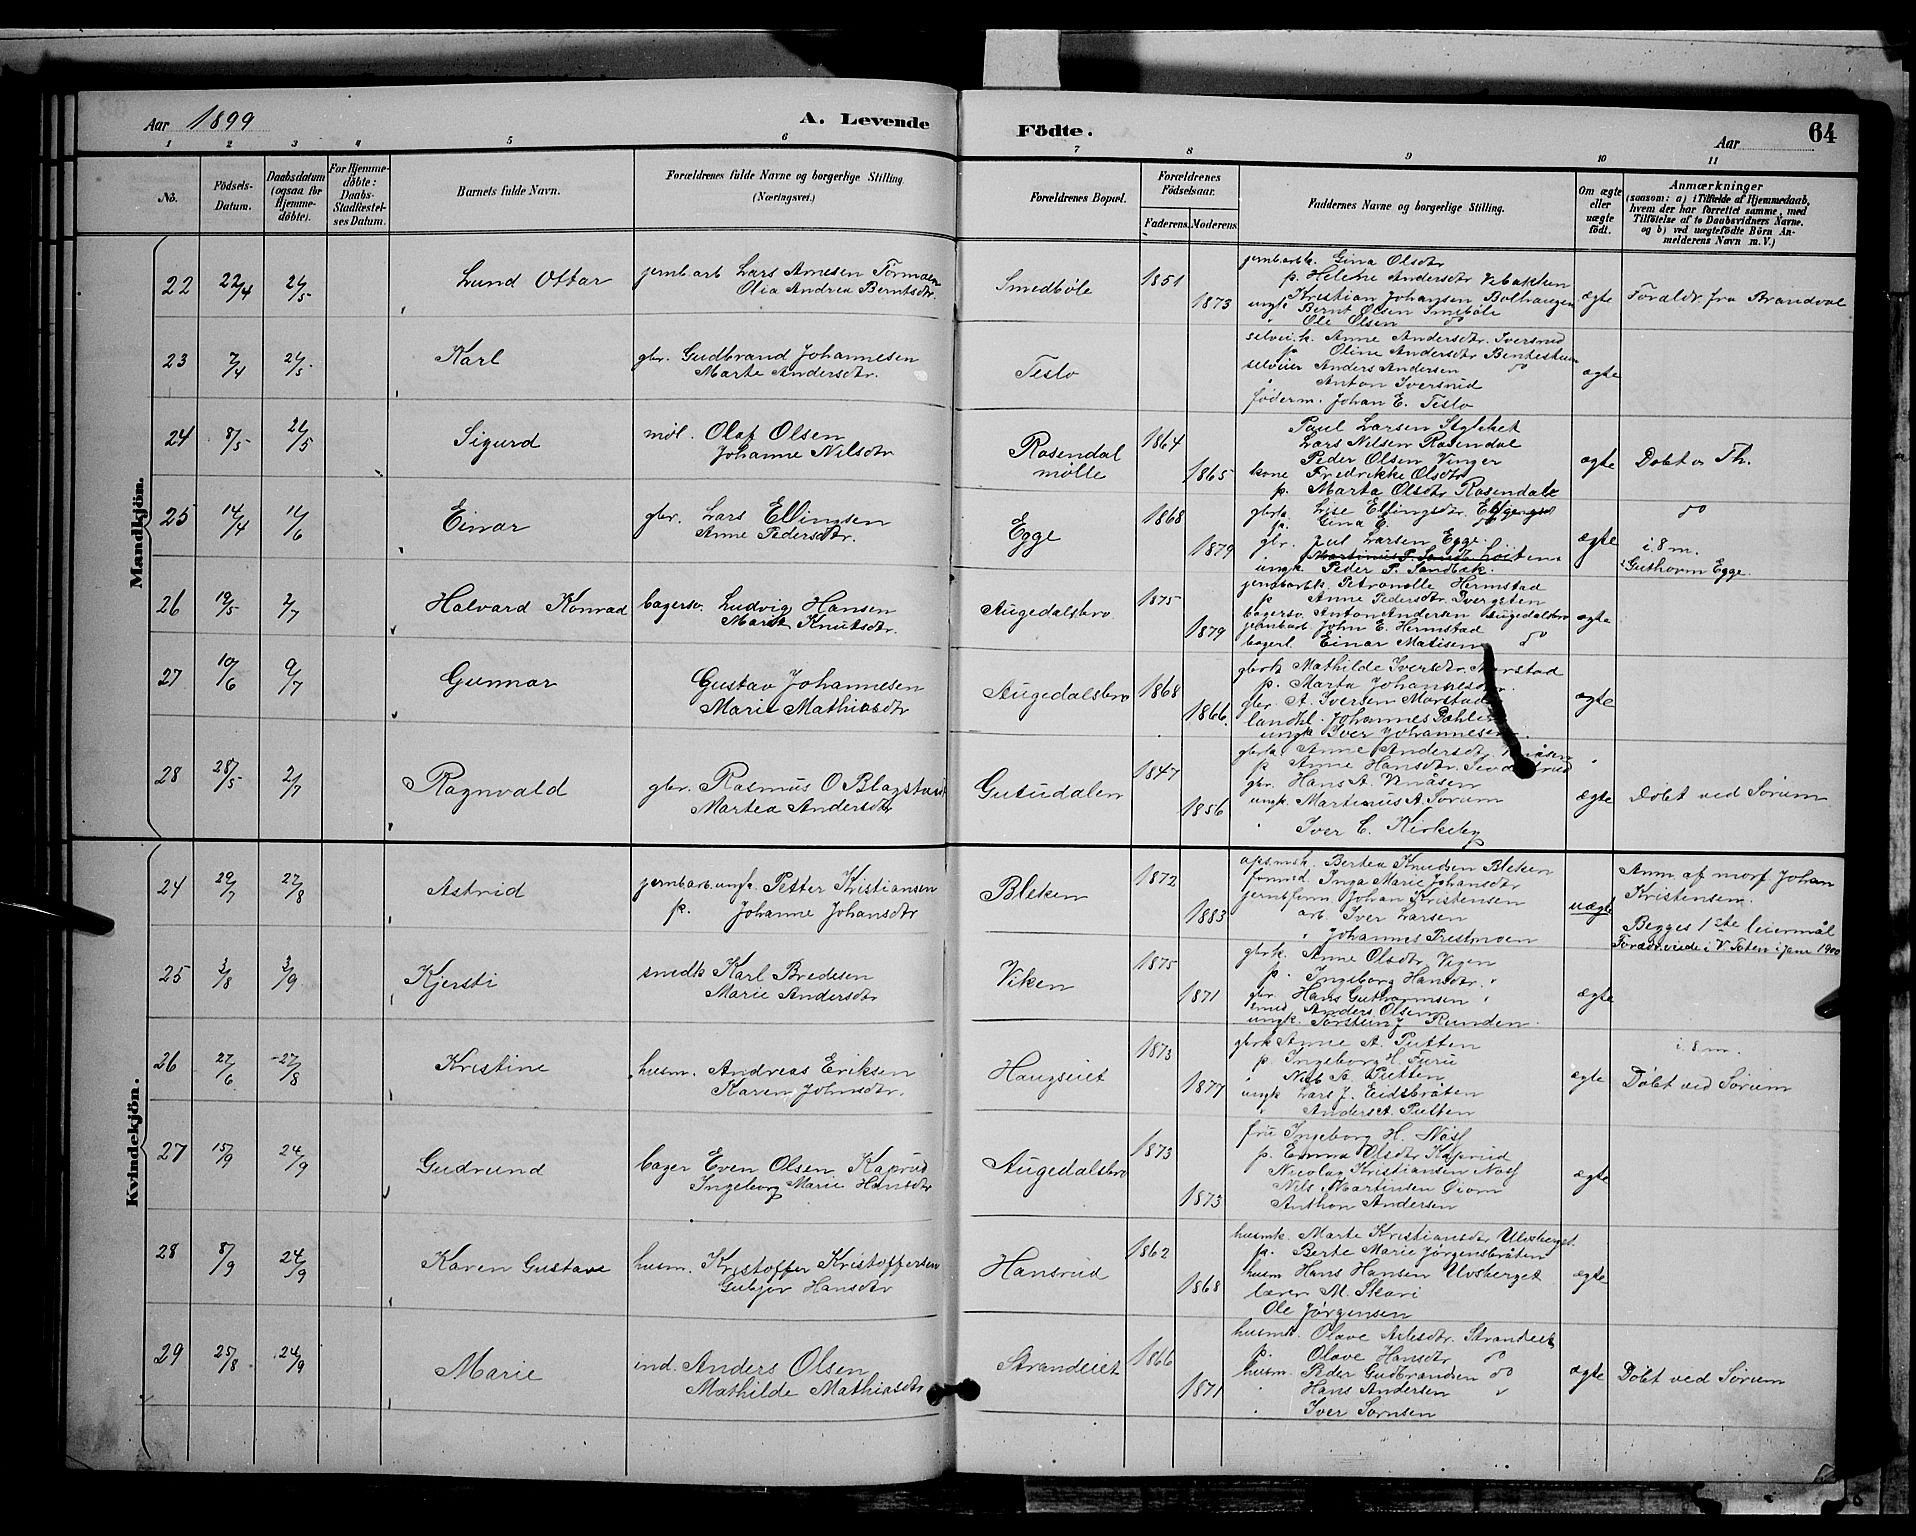 Aar 1899
A. Levende
Födte.
Aar
64
1 2 3 4 5 6 7 8 9 10 11
No.
Födsels-Datum.
Daabsdatum (ogsaa for Hjemme-döbte).
For Hjemme-döbte: Daabs-Stadfæstel-ses Datum.
Barnets fulde Navn.
Forældrenes fulde Navne og borgerlige Stilling. (Næringsvei.)
Forældrenes Bopæl.
Forældrenes Födselsaar.
Faderens. Moderens.
Faddernes Navne og borgerlige Stilling.
Om ægte eller uægte födt.
Anmærkninger
(saasom: a) i Tilfælde af Hjemmedaab,
hvem der har forrettet samme, med
Tilföielse af to Daabsvidners Navne.
og b) ved uægtefödte Börn An-
melderens Navn m. V.)
Mandkjön.
22 22/4 21/5 Lund Ottar
jernb.arb Lars Arnesen
Olia Andrea Berntsdtr.
Smedbøle 1851
1873
jernbarbk. Gina Olsdtr
p. Helene Andersdtr Vebakken
Kristian Johansen Bolhaugen
ungk Bernt Olsen Smeböle
Ole Olsen do
ægte
Foraldr fra Brandval
23 7/4 21/5 Karl
gbr. Gudbrand Johannesen
Marte Andersdtr.
Teslo
selvei.k. Anne Andersdtr Iversrud
p. Oline Andersdtr
selveier Anders Andersen do
Anton Iversrud
føderm. Johan E. Teslo
ægte
24 8/5 21/5 Sigurd
møl. Olaf Olsen
Johanne Nilsdtr
Rosendal
mølle
1864
1865
Paul Larsen
Lars Nilsen Rosendal
Peder Olsen Vinger
kone Fredrikke Olsdtr
p. Marta Olsdtr Rosendale
ægte
Døbt v Th.
25 14/4 11/6 Einar
gbr. Lars Ellingsen
Anne Pedersdtr.
Egge
1868
1879
gbrk. Lise Ellingsdtr.
p. Gina E. do
gbr. Jul Larsen Egge
ungk. Peder P. Sandbæk.
ægte
do
i. 8 m.
Guthorm Egge
26 19/5 2/7 Halvard Konrad
bagersv. Ludvig Hansen
Marit Knutsdtr.
Augedalsbro.
1875
1879
jernbarbk Petronelle Hermstad
p Anne Pedersdtr
bagersv. Anton Andersen Augedalsbro
jernbarb John E. Hermstad
bagerl Einar Matisen do
ægte
27 10/6 9/7 Gunnar
Gustav Johannesen
Marie Mathiasdtr
Augedalsbro
1868
1866.
gbrk Mathilde Iversdtr. Morstad
p. Marta Johannesdtr.
gbr. A. Iversen Morstad
landhl. Johannes Dæhlen
ungk Iver Johannesen
ægte
28 28/5 2/7 Ragnvald
gbr. Rasmus O Blagstad
Martea Andersdtr
Gutudalen
1847
1856
gbrk. Anne Andersdtr.
p. Anne Hansdtr.
gbr. Hans A.
ungk. Martinus A. Sørum
Iver C. Kirkeby
ægte
Døbt ved Sørum
Kvindekjön.
24 29/7 27/8 Astrid
jernbarb. ungk. Petter Kristiansen
p. Johanne Johansdtr
Bleken
1872
1883
Bertea Knudsen Bleken
Inga Marie Johansdtr
jernbform Johan Kristensen
arb. Iver Larsen
Johannes Prestmoen
uægte
Anm. af morf Johan
Kristensen.
Begges 1ste leiermål
Forældr. viede i V. Toten i Jan. 1900
25 3/8 3/9 Kjersti
smedk Karl Bredesen
Marie Andersdtr
Viken
1875
1871
gbrk. Anne Olsdtr. Vigen
p. Ingeborg Hansdtr. "
gbr. Hans Guthormsen "
smed Anders Olsen
ungk. Torstein J Runden.
ægte
26 27/6 27/8 Kristine
husm. Andreas Eriksen
Karen Johnsdtr.
Haugseiet
1873
1877
gbrk Anne A. Putten
p. Ingeborg H. Furu
Nils A. Putten
ungk Lars J. Eidsbråten
Anders A. Putten
ægte
i. 8 m.
Døbt ved Sørum
27 15/9 24/9 Gudrund
bager Even Olsen Kaprud
Ingeborg Marie Hansdtr
Augedalsbro
1873
1873
fru Ingeborg H. Næss
p. Emma Olsdtr Kaprud
Nicolay Kristiansen Næss
Nils Martinsen
Anthon Andersen
ægte
28 8/9 24/9 Karen Gustave
husm. Kristoffer Kristoffersen
Gubjør Hansdtr
Hansrud
1862
1868
husmk. Marte Kristiansdtr Ulvsberget
p. Berte Marie Jørgensbråten
husm Hans Hansen Ulvsberget
lærer M. Skari
Ole Jørgensen
ægte
29 25/8 24/9 Marie
ind. Anders Olsen
Mathilde Mathiasdtr
Strandeiet
1866
1871
husmk. Olave Strandeiet
p. Olave Hansdtr do
husm. Peder Gudbrandsen do
Hans Andersen "
Iver Sørnsen
ægte
Døbt ved Sørum